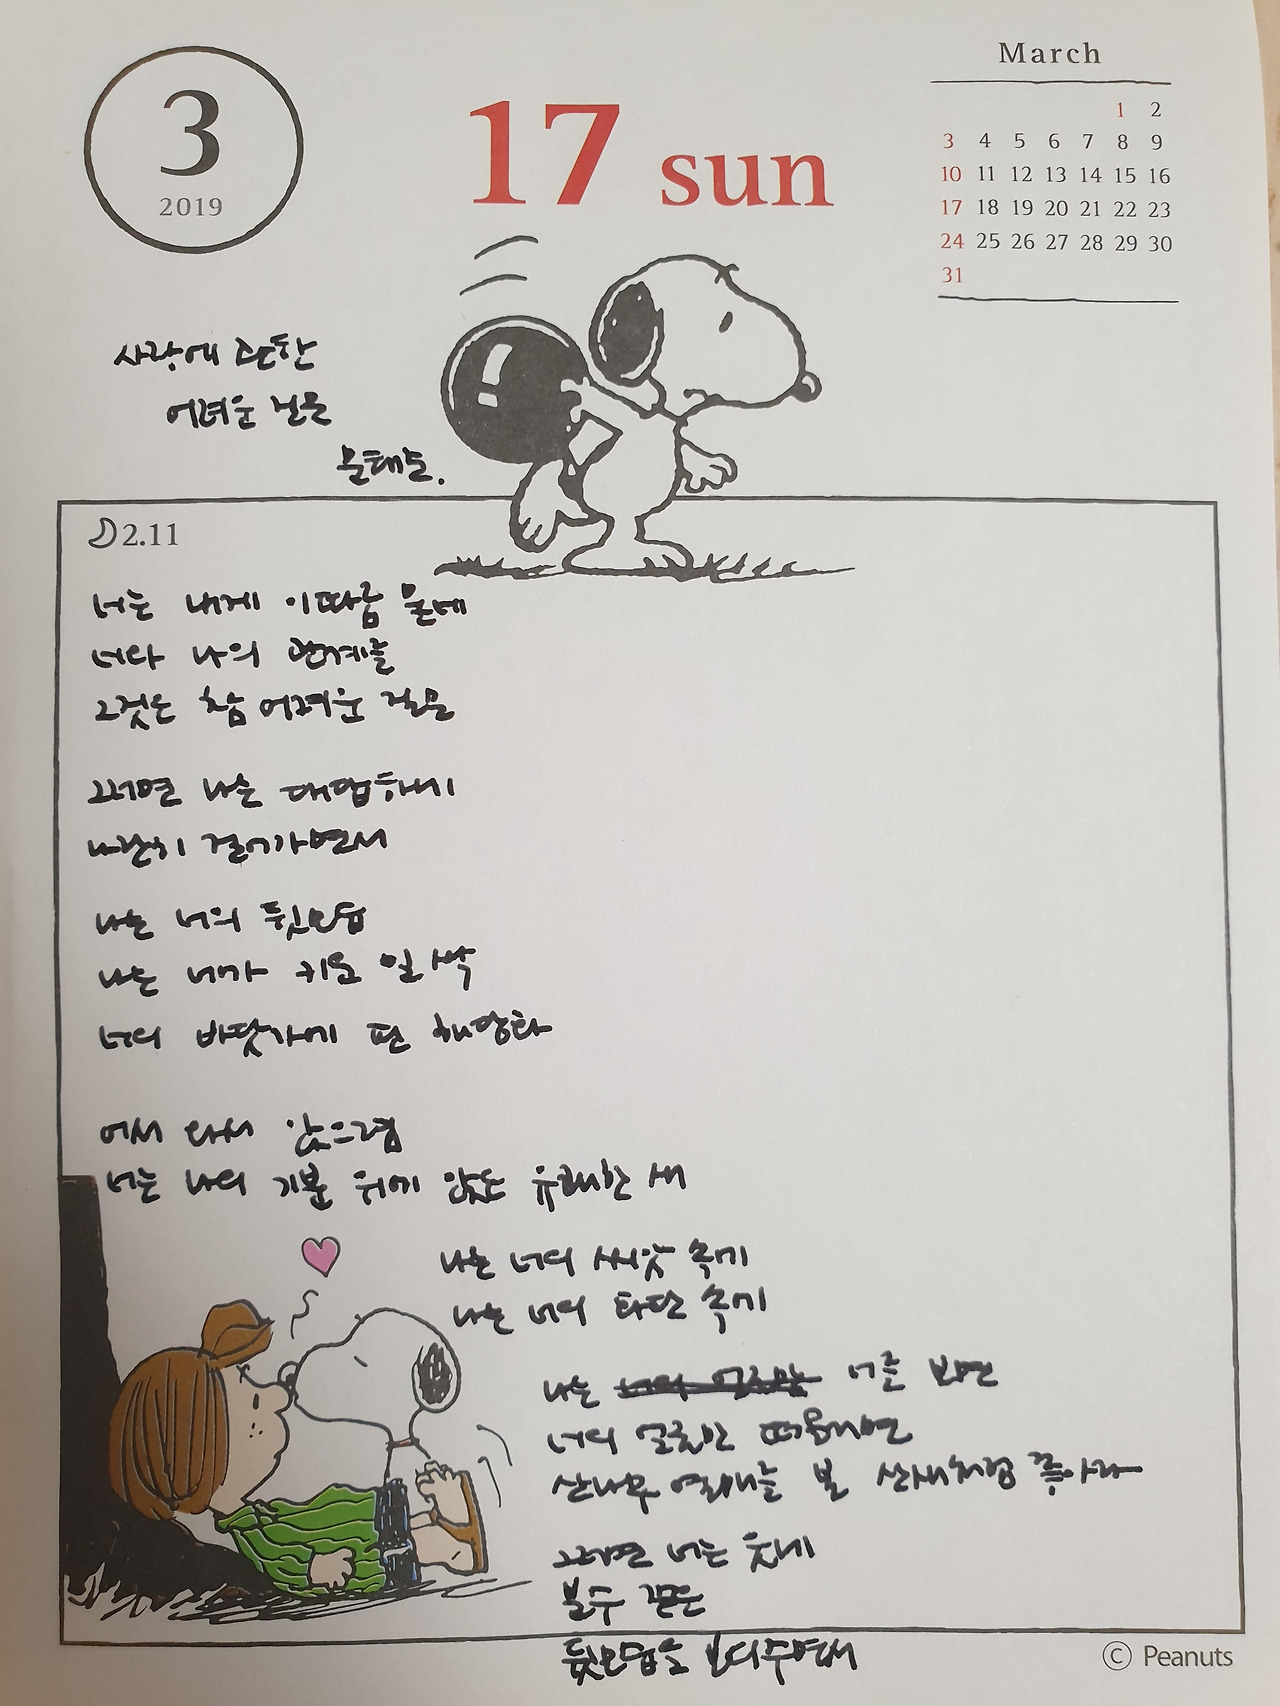 3
2019
17 sun
March
1 2
3 4 5 6 7 8 9
10 11 12 13 14 15 16
17 18 19 20 21 22 23
24 25 26 27 28 29 30
31
사랑에 관한
어려운 질문
문태준.
2.11
너는 내게 이따금 묻네
너와 나의 관계를
그것은 참 어려운 질문
그러면 나는 대답하네
나란히 걸어가면서
나는 너의 뒷모습
나는 네가 키운 밀싹
너의 바닷가에 핀 해당화
어서 와서 앉으렴
너는 나의 기분 위에 앉은 유쾌한 새
나는 너의 씨앗 속에
나는 너의 화단 속에
나는 너를 보면
너의 얼굴만 떠올려면
산나무 열매를 본 산새처럼 좋아라
그러면 너는 웃네
분수 같은
뒷모습을 보여주면서
© Peanuts